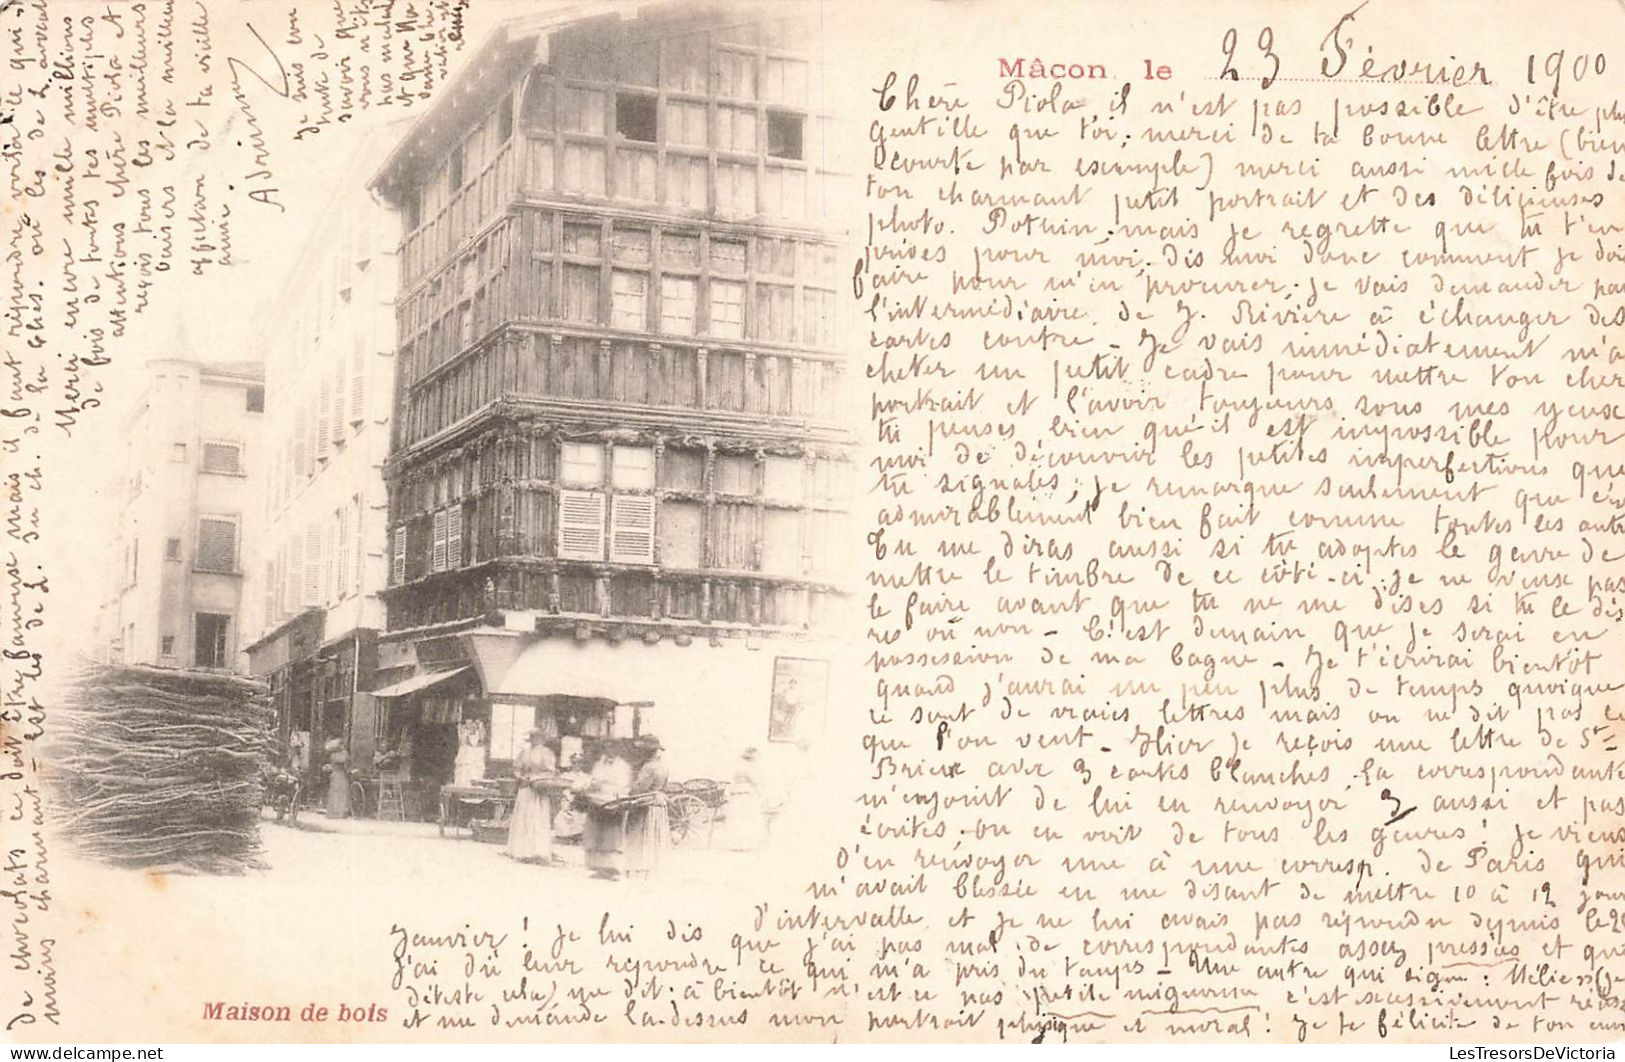 Mâcon le 23 Février 1900
Chère Piola, il n'est pas possible d'être plus
gentille que toi; merci de ta bonne lettre (bien
courte par exemple) merci aussi mille fois de
ton charmant petit portrait et des délicieuses
photo. Pothin, mais je regrette que tu t'en
prives pour moi. Dis moi donc comment je dois
faire pour m'en procurer; je vais demander par
l'intermédiaire de J. Rivière à échanger des
cartes contre - Je vais immédiatement m'a
cheter un petit cadre pour mettre ton cher
portrait et l'avoir toujours sous mes yeux
tu penses bien qu'il est impossible pour
moi de découvrir les petites imperfections que
tu signales; je remarque seulement que c'est
admirablement bien fait comme toutes les autres
Tu me diras aussi si tu adoptes le genre de
mettre le timbre de ce côté-ci. je ne veux pas
le faire avant que tu ne me dises si tu le dési
res ou non - C'est demain que je serai en
possession de ma bague - Je t'écrirai bientôt
quand j'aurai un peu plus de temps quoique
ce sont de vraies lettres mais on ne dit pas ce
que l'on veut - Hier je reçois une lettre de St-
Brieux avec 3 cartes blanches. la correspondante
m'enjoint de lui en renvoyer 3 aussi et pas
écrites. On en voit de tous les genres! Je viens
d'en renvoyer une à une corresp. de Paris qui
m'avait blessée en me disant de mettre 10 à 12 jours
d'intervalle et je ne lui avais pas répondu depuis le 28
Janvier! Je lui dis que j'ai pas mal de correspondantes assez pressées et que
j'ai dû leur répondre ce qui m'a pris du temps - Une autre qui signe: Mélie (je
déteste cela) me dit: à bientôt n'est ce pas petite mignonne c'est excessivement
et me demande la-dessus mon portrait physique et moral! Je te félicite de ton
de chocolats ce doit être fameux mais il faut répondre, voilà ce qui
moins charmant - est les de L. du ch. de la
Merci encore mille millions
de fois de toutes tes multiples
attentions chère Piola et
reçois tous les meilleurs
baisers et la meilleure
affection de ta vieille
amie.
Adrienne
Je suis con
tente de
savoir que
vous n'êtes
pas malade
et que
Maison de bois
LesTresorsDeVictoria